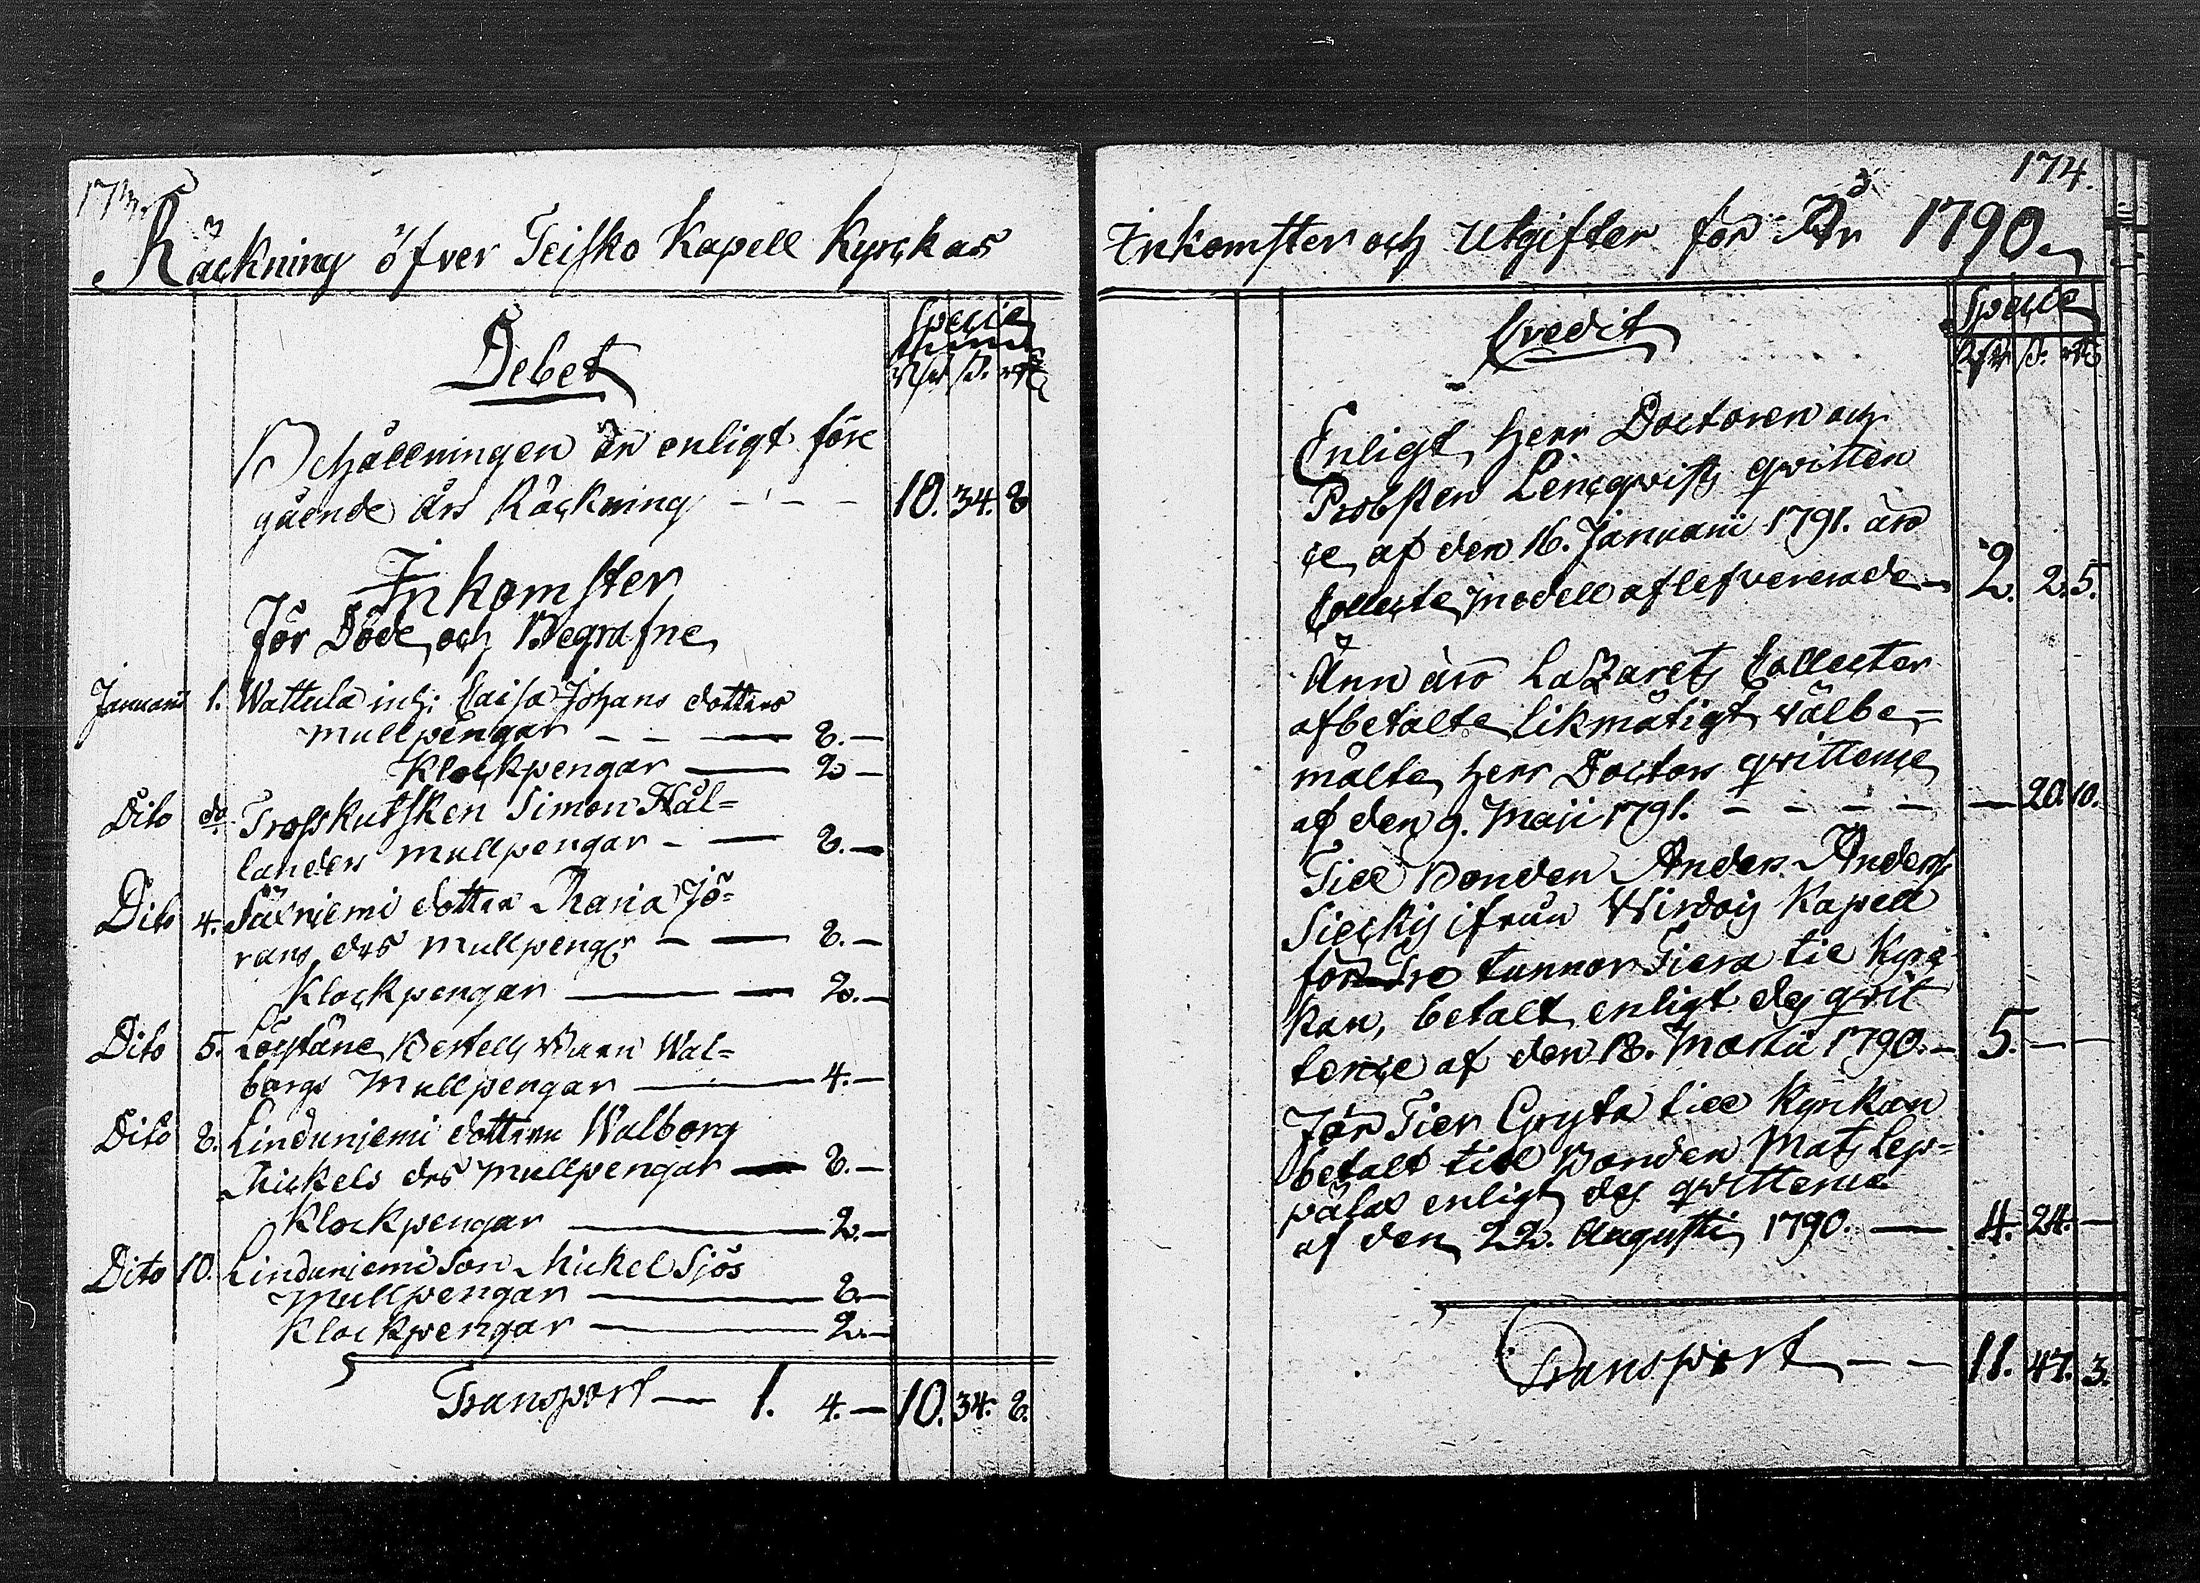 173.
Räckning öfver Teisko Kapell Kyrckas
Debet
Specie
Rdr s. rst
Behållningen är enligt före
gående års Räckning - - - 10. 34. 8
Inkomster
För Döde och Begrafne
Januarii 1. Wattula inh: Caisa Johans dotters
Mullpengar - - — 8. —
Klockpengar — 2 —
Dito do Trosskutsken Simon Hål=
landers mullpengar - — 8. —
Dito 4. Säxniemi dotter Maria Jö=
rans drs Mullpengr — — 8. —
Klockpengar — — 2. —
Dito 5. Löytäne Bertells Enkan Wal=
borgs Mullpengar — 4. —
Dito 8. Linduniemi dottren Walborg
Mickels drs Mullpengar — 8. —
Klockpengar — 2. —
Dito 10. Linduniemi Son Mickel Sjös
Mullpengar — 8. —
Klockpengar — 2. —
Transport — 1. 4. — 10. 34. 8.
174.
Inkomster och Utgifter för År 1790.
Credit
Specie
Rdr s. rst
Enligt Herr Doctoren och
Probsten Lencqvists qvitten
ce af den 16. Januarii 1791. äro
Collecte Medell aflefvererade — 2. 2. 5.
Änn äro Lazarets Collecter
afbetalte likmätigt välbe=
mälte Herr Doctors qvittence
af den 9. Maji 1791. - - - — — 20. 10.
Till Bonden Anders Anders:
Sieckis ifrån Wirdois Kapell
för Tre tunnor Tiera till Kyrc
kan, betalt enligt des qvit
tence af den 18. Martii 1790. — 5. — —
För Tier Gryta till Kyrkan
betalt till Bonden Mats Lep=
pälax enligt des qvittence
af den 22. Augusti 1790. — 4. 24. —
Transport — — 11. 47. 3.